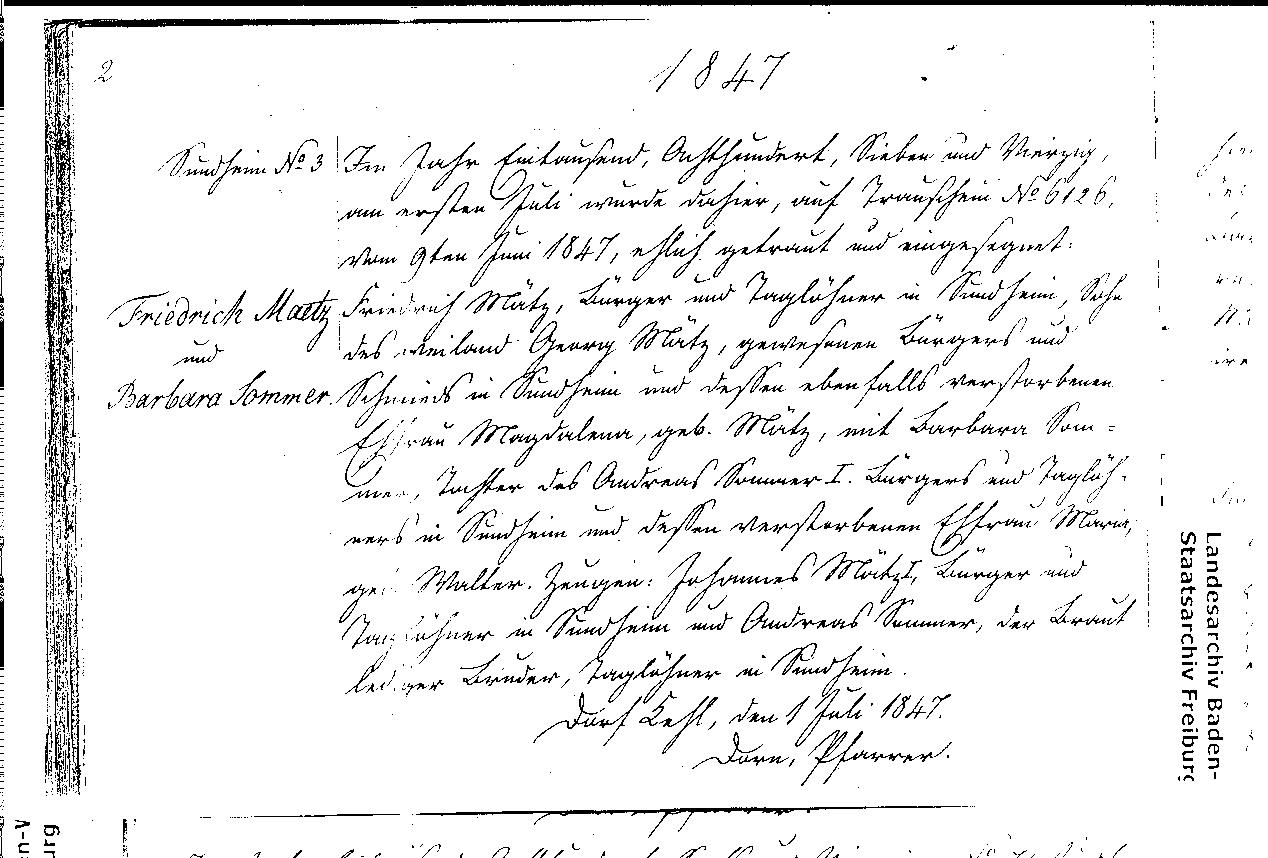 2
1847
Sundheim No 3
Im Jahr Eintausend, Achthundert, Sieben und Vierzig,
am ersten Juli wurde dahier, auf Trauschein No 6126,
vom 9ten Juni 1847, ehlich getraut und eingesegnet:
Friedrich Maetz
und
Barbara Sommer.
Friedrich Mätz, Bürger und Taglöhner in Sundheim, Sohn
des weiland Georg Mätz, gewesenen Bürgers und
Schmieds in Sundheim und dessen ebenfalls verstorbenen
Ehfrau Magdalena, geb. Mätz, mit Barbara Som-
mer, Tochter des Andreas Sommer I. Bürgers und Taglöh-
ners in Sundheim und dessen verstorbenen Ehfrau Maria,
geb. Walter. Zeugen: Johannes Mätz I, Bürger und
Taglöhner in Sundheim und Andreas Sommer, der Braut
lediger Bruder, Taglöhner in Sundheim.
Dorf Kehl, den 1 Juli 1847.
Dorn, Pfarrer.
Landesarchiv Baden-
Staatsarchiv Freiburg